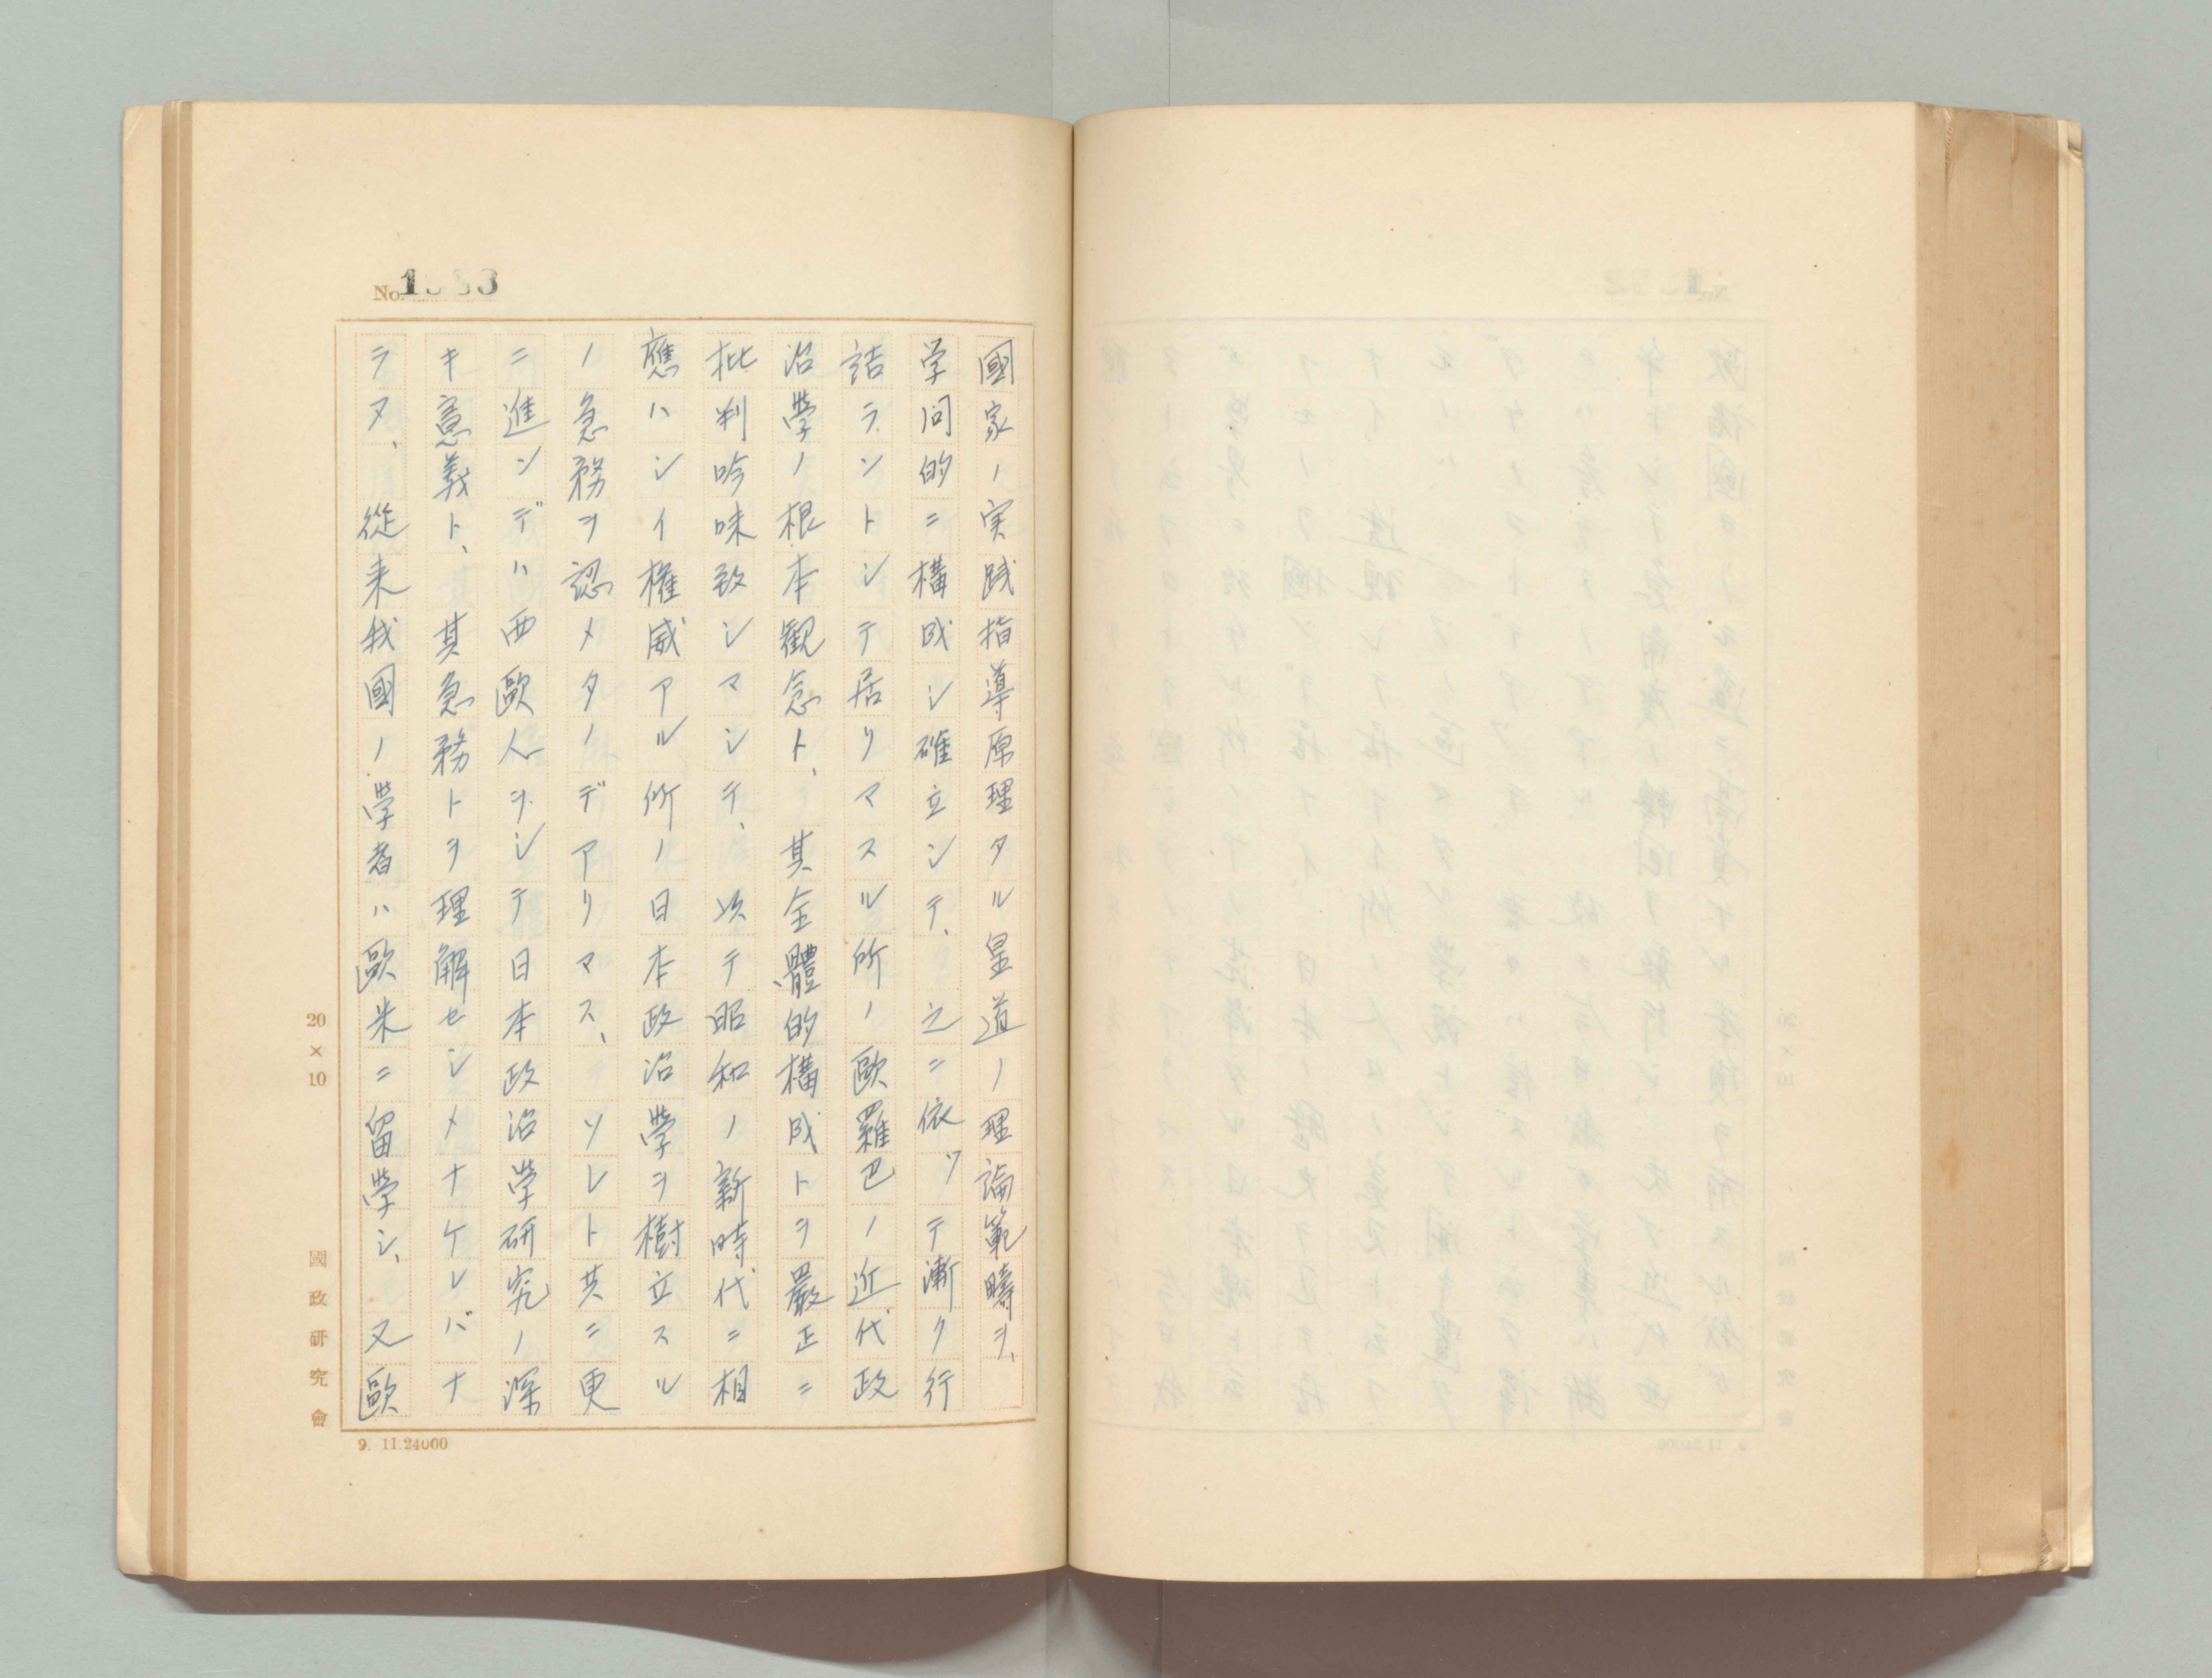 No.1383
國家ノ実践指導原理タル皇道ノ理論範疇ヲ、
学問的ニ構成シ確立シテ、之ニ依ツテ漸ク行
詰ラントシテ居リマスル所ノ歐羅巴ノ近代政
治學ノ根本観念ト、其全體的構成トヲ嚴正ニ
批判吟味致シマシテ、以テ昭和ノ新時代ニ相
應ハシイ權威アル所ノ日本政治學ヲ樹立スル
ノ急務ヲ認メタノデアリマス、ソレト共ニ更
ニ進ンデハ西歐人ヲシテ日本政治學研究ノ深
キ意義ト、其急務トヲ理解セシメナケレバナ
ラヌ、從来我國ノ學者ハ歐米ニ留學シ、又歐
20×10
國政研究會
9. 11.24000